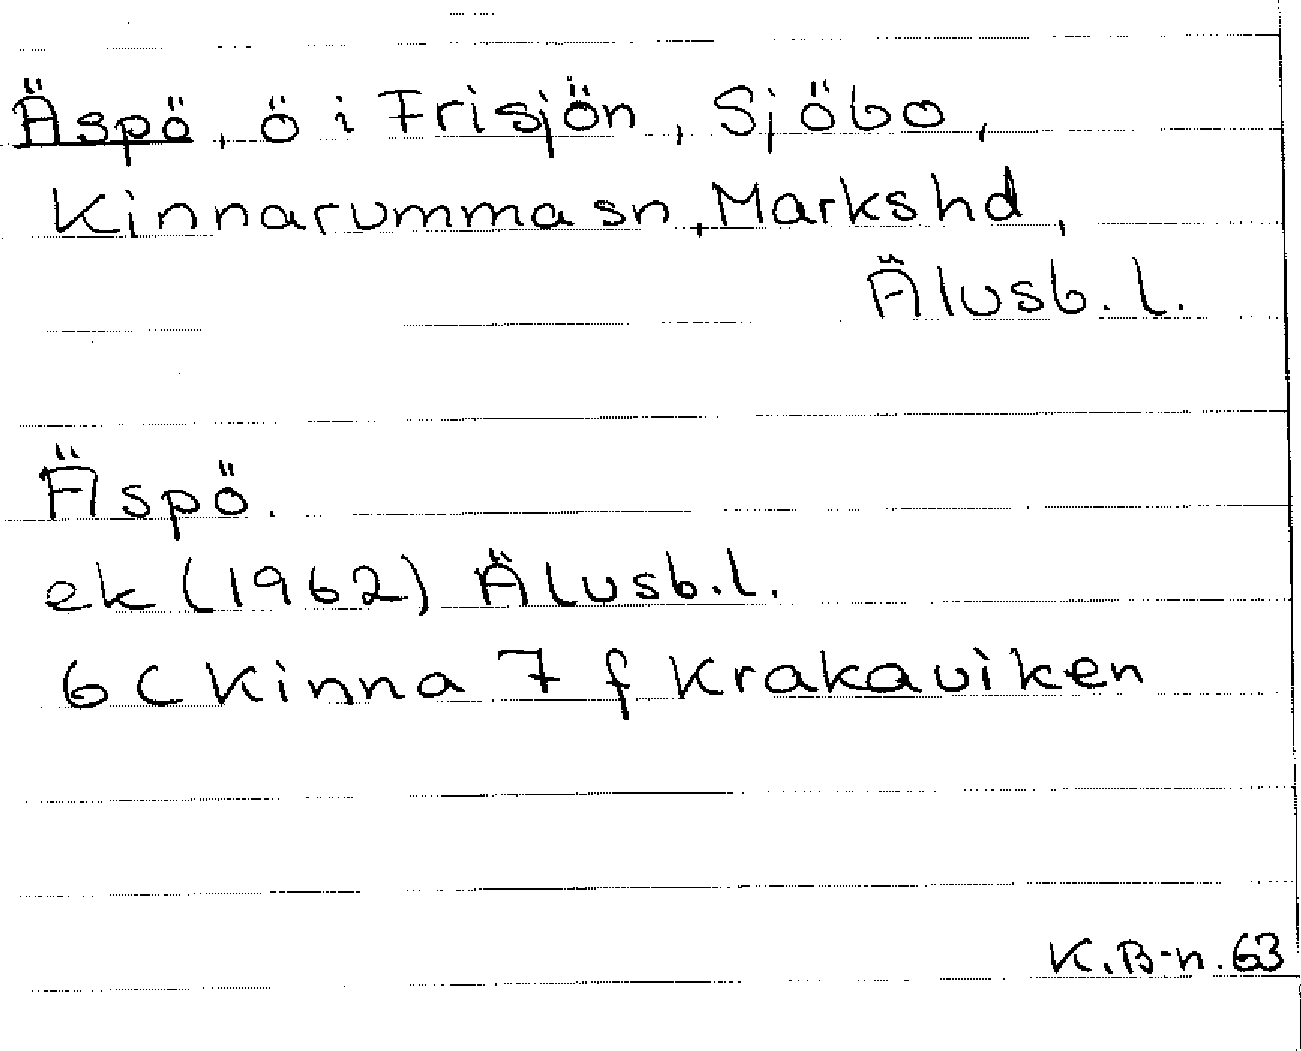 Äspö, ö i Frisjön, Sjöbo,
Kinnarumma sn, Marks hd,
Älvsb. l.
Äspö.
ek (1962) Älvsb. l.
6 C Kinna 7 f Krakaviken
K. B-n. 63